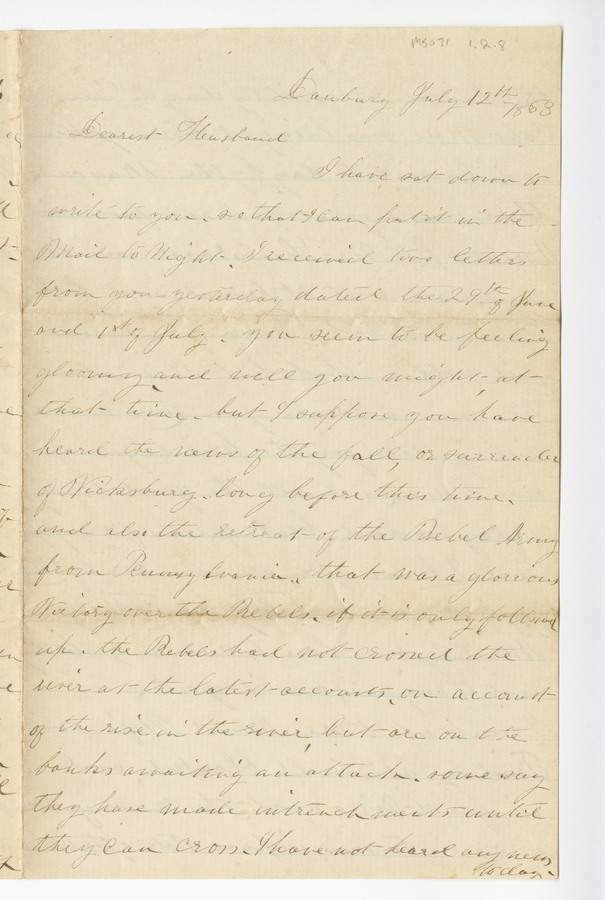 MS071 1.2.8
Danbury July 12th /1863
Dearest Husband
I have sat down to
write to you. so that I can put it in the
Mail to Night. I received two letters
from you yesterday dated the 29th of June
and 1st of July. you seem to be feeling
gloomy and well you might, at
that time. but I suppose you have
heard the news of the fall, or surrender
of Vicksburg. long before this time.
and also the retreat of the Rebel Army
from Pennsylvania. that was a glorious
Victory over the Rebels. if it is only followed
up. the Rebels had not crossed the
river at the latest accounts. on account
of the rise in the river, but are on the
banks awaiting an attack. some say
they have made intrenchments until
they can cross. I have not heard any news
today.